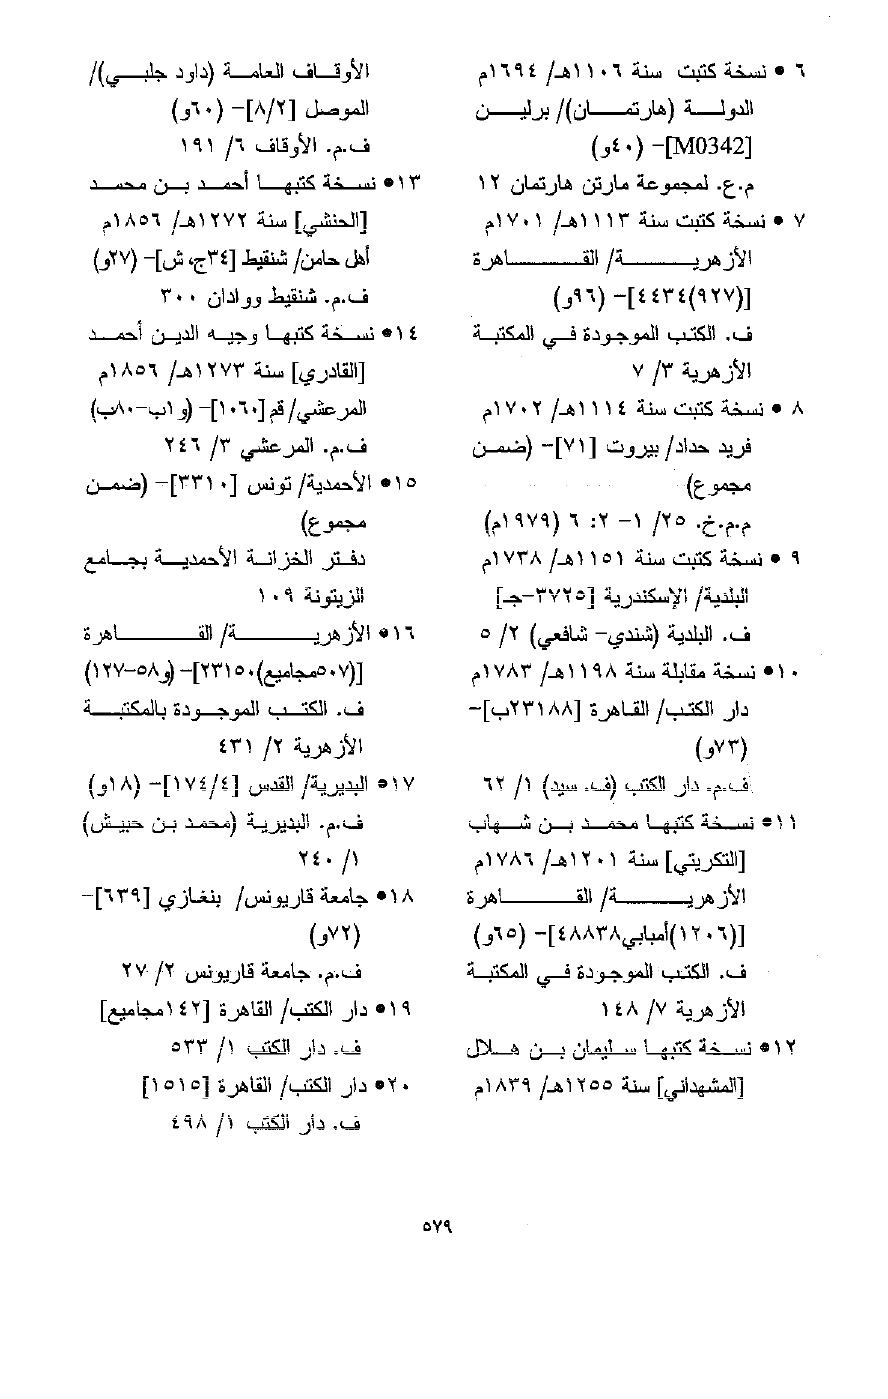 ٦ • نسخة كتبت سنة ١١٠٦هـ/ ١٦٩٤م
الدولة (هارتمان)/ برلين
[M0342]- (٤٠و)
م.ع. لمجموعة مارتن هارتمان ١٢
٧ • نسخة كتبت سنة ١١١٣هـ/ ١٧٠١م
الأزهرية/ القاهرة
[(٩٢٧)٤٤٣٤]- (٩٦و)
ف. الكتب الموجودة في المكتبة
الأزهرية ٣/ ٧
٨ • نسخة كتبت سنة ١١١٤هـ/ ١٧٠٢م
فريد حداد/ بيروت [٧١]- (ضمن
مجموع)
م.م.خ. ٢٥/ ١- ٢: ٦ (١٩٧٩م)
٩ • نسخة كتبت سنة ١١٥١هـ/ ١٧٣٨م
البلدية/ الإسكندرية [٣٧٢٥-جـ]
ف. البلدية (شندي- شافعي) ٢/ ٥
١٠• نسخة مقابلة سنة ١١٩٨هـ/ ١٧٨٣م
دار الكتب/ القاهرة [٢٣١٨٨ب]-
(٧٣و)
ف.م. دار الكتب (ف. سيد) ١/ ٦٢
١١• نسخة كتبها محمد بن شهاب
[التكريتي] سنة ١٢٠١هـ/ ١٧٨٦م
الأزهرية/ القاهرة
[(١٢٠٦)أمبابي٤٨٨٣٨]- (٦٥و)
ف. الكتب الموجودة في المكتبة
الأزهرية ٧/ ١٤٨
١٢• نسخة كتبها سليمان بن هلال
[المشهداني] سنة ١٢٥٥هـ/ ١٨٣٩م
الأوقاف العامة (داود جلبي)/
الموصل [٨/٢]- (٦٠و)
ف.م. الأوقاف ٦/ ١٩١
١٣• نسخة كتبها أحمد بن محمد
[الحنشي] سنة ١٢٧٢هـ/ ١٨٥٦م
أهل حامن/ شنقيط [٣٤ج، ش]- (٢٧و)
ف.م. شنقيط ووادان ٣٠٠
١٤• نسخة كتبها وجيه الدين أحمد
[القادري] سنة ١٢٧٣هـ/ ١٨٥٦م
المرعشي/ قم [١٠٦٠]- (و ١ب-٨٠ب)
ف.م. المرعشي ٣/ ٢٤٦
١٥• الأحمدية/ تونس [٣٣١٠]- (ضمن
مجموع)
دفتر الخزانة الأحمدية بجامع
الزيتونة ١٠٩
١٦• الأزهرية/ القاهرة
[(٥٠٧مجاميع)٢٣١٥٠]- (و٥٨-١٢٧)
ف. الكتب الموجودة بالمكتبة
الأزهرية ٢/ ٤٣١
١٧• البديرية/ القدس [١٧٤/٤]- (١٨و)
ف.م. البديرية (محمد بن حبيش)
١/ ٢٤٠
١٨• جامعة قاريونس/ بنغازي [٦٣٩]-
(٧٢و)
ف.م. جامعة قاريونس ٢/ ٢٧
١٩• دار الكتب/ القاهرة [١٤٢مجاميع]
ف. دار الكتب ١/ ٥٣٣
٢٠• دار الكتب/ القاهرة [١٥١٥]
ف. دار الكتب ١/ ٤٩٨
٥٧٩